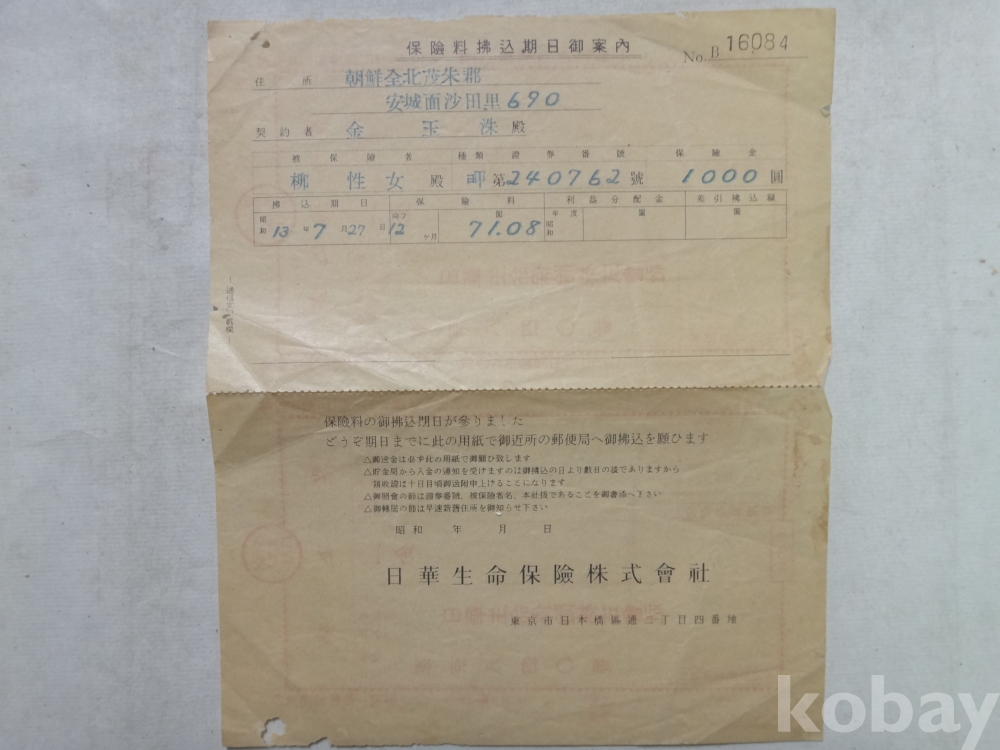 保險料拂込期日御案內
No. B 16084
住所 朝鮮全北茂朱郡
安城面沙田里690
契約者 金玉洙殿
被保險者 種類證券番號 保險金
柳性女殿 第240762號 1000圓
拂込期日 保險料 利益分配金 差引拂込額
圓 年度 圓 圓
昭和13年7月27日 12ヶ月 71.08 昭和
保險料の御拂込期日が參りました
どうぞ期日までに此の用紙で御近所の郵便局へ御拂込を願ひます
△御送金は必ず此の用紙で御願ひ致します
△貯金局から入金の通知を受けますのは御拂込の日より數日の後でありますから
領收證は十日目頃御送附申上げることになります
△御照會の節は證券番號、被保險者名、本社扱であることを御書添へ下さい
△御轉居の節は早速新舊住所を御知らせ下さい
昭和 年 月 日
日華生命保險株式會社
東京市日本橋區通二丁目四番地
kobay